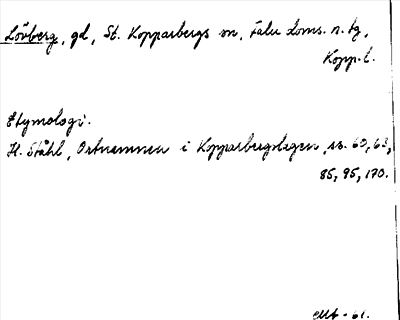 Lövberg, gd, St. Kopparbergs sn, Falu Doms. n. tg,
Kopp. l.
Etymologi.
H. Ståhl, Ortnamnen i Kopparbergslagen, ss. 60, 63,
85, 95, 170.
61.